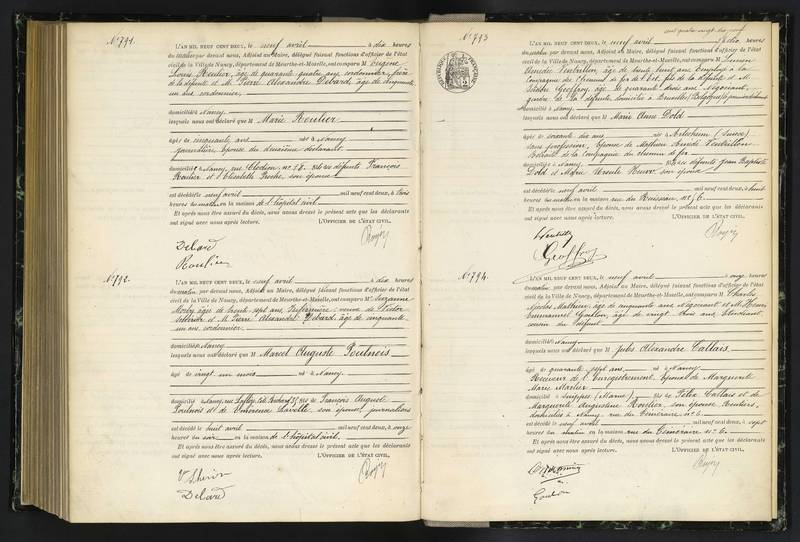 N° 791.
L'AN MIL NEUF CENT DEUX, le neuf avril à dix heures
du matin par devant nous, Adjoint au Maire, délégué faisant fonctions d'officier de l'état
civil de la Ville de Nancy, département de Meurthe-et-Moselle, ont comparu M Eugène
Louis Roulier, âgé de quarante quatre ans, cordonnier, frère
de la défunte et M. Pierre Alexandre Debard, âgé de cinquante
un ans cordonnier,
domiciliés à Nancy
lesquels nous ont déclaré que M Marie Roulier
âgée de cinquante ans née à Nancy
journalière, épouse du deuxième déclarant
domiciliée à Nancy, rue Clodion, n° fille de défunts François
Roulier et Elisabeth son épouse
est décédée le neuf avril mil neuf cent deux, à trois
heures du matin en la maison de l'hôpital civil
Et après nous être assuré du décès, nous avons dressé le présent acte que les déclarants
ont signé avec nous après lecture. L'OFFICIER DE L'ÉTAT CIVIL,
Debard
Roulier
N° 792.
L'AN MIL NEUF CENT DEUX, le neuf avril à dix heures
du matin par devant nous, Adjoint au Maire, délégué faisant fonctions d'officier de l'état
civil de la Ville de Nancy, département de Meurthe-et-Moselle, ont comparu M Suzanne
âgée de trente sept ans, Infirmière, veuve de Victor
et M. Pierre Alexandre Debard, âgé de cinquante
un ans cordonnier
domiciliés à Nancy
lesquels nous ont déclaré que M Marcel Auguste Poulnois
âgé de vingt un mois né à Nancy
domicilié à Nancy, rue fils de François August
Poulnois et de son épouse, journaliers
est décédé le huit avril mil neuf cent deux, à onze
heures du soir en la maison de l'hôpital civil
Et après nous être assuré du décès, nous avons dressé le présent acte que les déclarants
ont signé avec nous après lecture. L'OFFICIER DE L'ÉTAT CIVIL,
Debard
cent quatre vingt dix neuf
N° 793
L'AN MIL NEUF CENT DEUX, le neuf avril à dix heures
du matin par devant nous, Adjoint au Maire, délégué faisant fonctions d'officier de l'état
civil de la Ville de Nancy, département de Meurthe-et-Moselle, ont comparu M Lucien
Amédée âgé de trente huit ans Employé à la
Compagnie du Chemin de fer de l'Est, fils de la défunte et M.
Geoffroy, âgé de quarante trois ans Négociant,
gendre de la défunte, domiciliés à Bruxelles (Belgique)
domiciliés à Nancy
lesquels nous ont déclaré que M Marie Anne Dold
âgée de soixante dix ans née à Arlesheim (Suisse)
sans profession, épouse de Mathieu
Retraité de la Compagnie du chemin de fer
domiciliée à Nancy fille de défunts Jean Baptiste
Dold et Marie son épouse
est décédée le neuf avril mil neuf cent deux, à huit
heures du matin en la maison rue du Ruisseau, n° 6
Et après nous être assuré du décès, nous avons dressé le présent acte que les déclarants
ont signé avec nous après lecture. L'OFFICIER DE L'ÉTAT CIVIL,
Geoffroy
N° 794.
L'AN MIL NEUF CENT DEUX, le neuf avril à onze heures
du matin par devant nous, Adjoint au Maire, délégué faisant fonctions d'officier de l'état
civil de la Ville de Nancy, département de Meurthe-et-Moselle, ont comparu M Charles
Nicolas Mathieu, âgé de cinquante ans Négociant et M. Henri
Emmanuel Goulon, âgé de vingt trois ans étudiant,
cousin du défunt
domiciliés à Nancy
lesquels nous ont déclaré que M Jules Alexandre Callais
âgé de quarante sept ans né à Nancy
Receveur de l'Enregistrement, époux de Marguerite
Marie
domicilié à Suippes (Marne) fils de Félix Callais et de
Marguerite Augustine son épouse Rentiers,
domiciliés à Nancy rue du Téméraire n° 6
est décédé le neuf avril mil neuf cent deux, à sept
heures du matin en la maison rue du Téméraire n° 6.
Et après nous être assuré du décès, nous avons dressé le présent acte que les déclarants
ont signé avec nous après lecture. L'OFFICIER DE L'ÉTAT CIVIL,
Goulon